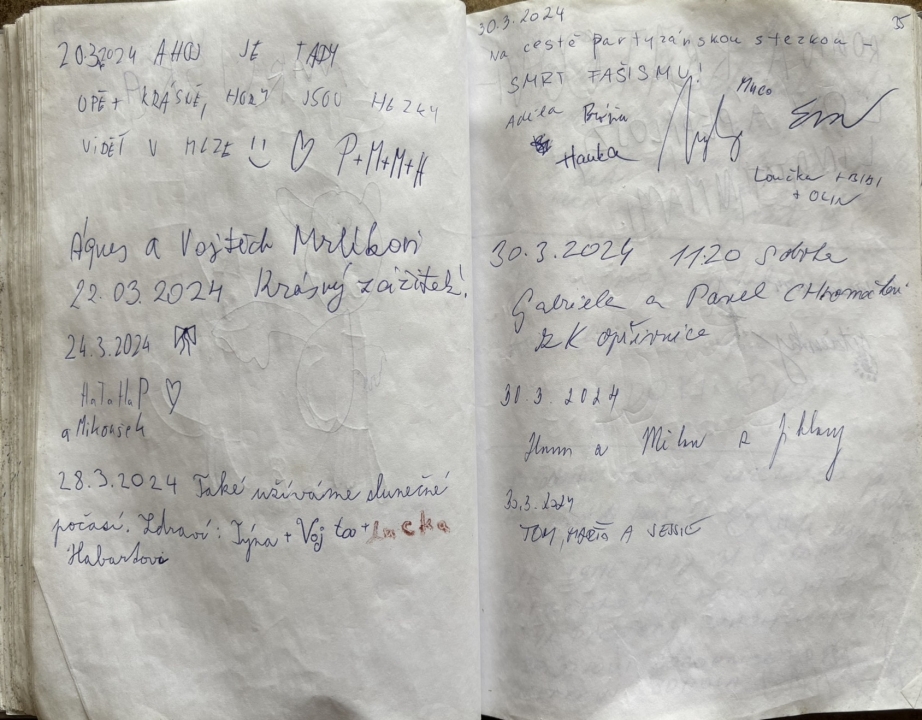 20.3.2024 AHOJ JE TADY
OPĚT KRÁSNĚ, HORY JSOU HEZKY
VIDĚT V MLZE :) ♡ P+M+M+H
Agnes a Vojtěch Mrlíkovi
22.03.2024 Krásný zážitek!
24.3.2024
HaTaHaP ♡
a Mikoušek
28.3.2024 Také užíváme slunečné
počasí. Zdraví: Týna + Vojta + Lucka
Habartovi
35
30.3.2024
Na cestě partyzánskou stezkou -
SMRT FAŠISMU!
Adéla
Hanka
Loučka + BIBI
+ OLIN
30.3.2024 11:20 Sobota
Gabriela a Pavel
ZK Opřivnice
30.3.2024
a Milan a
30.3.2024
TOM, A JESSIE